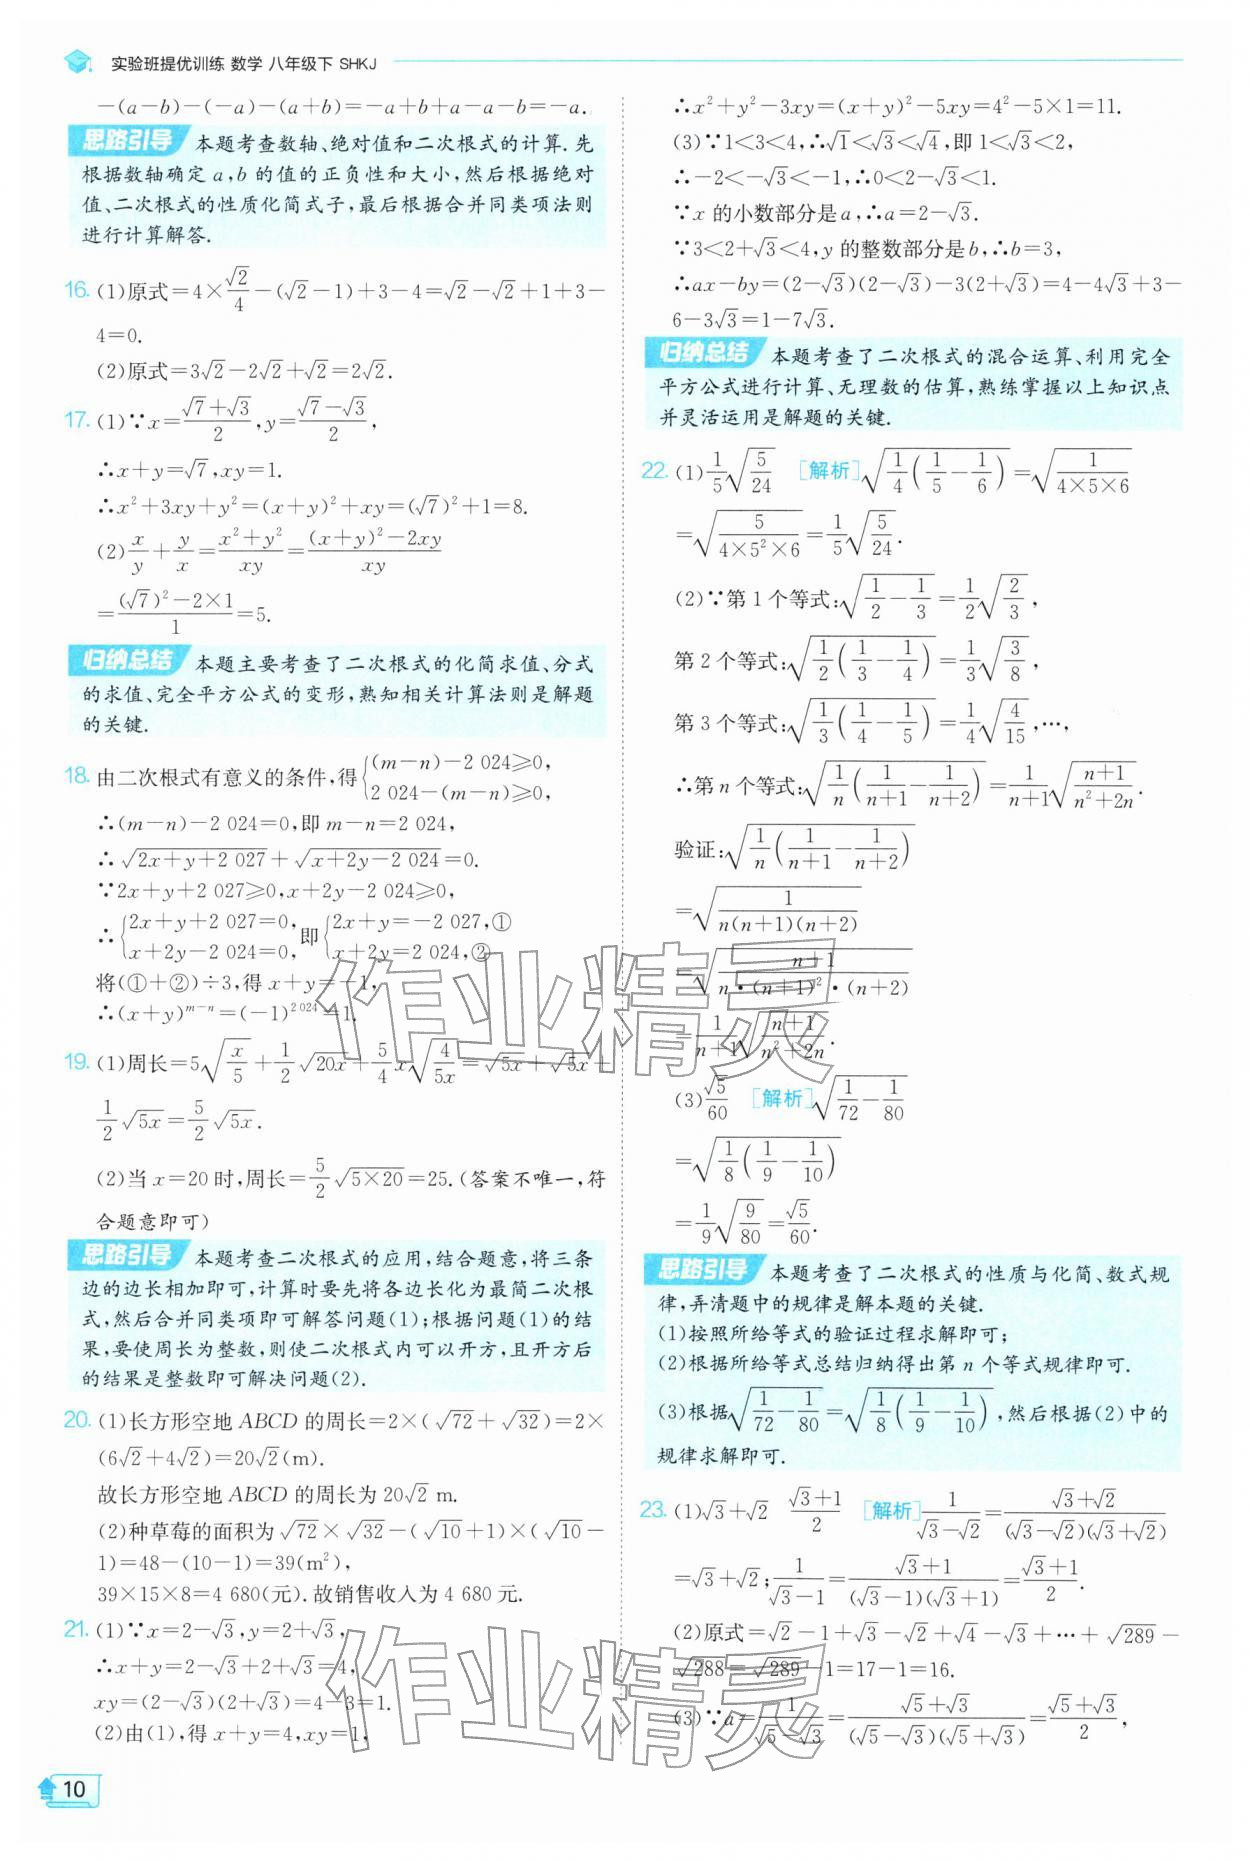 实验班提优训练 数学 八年级下 SHKJ
-(a-b)-(-a)-(a+b)=-a+b+a-a-b=-a.
思路引导 本题考查数轴、绝对值和二次根式的计算. 先
根据数轴确定 a,b 的值的正负性和大小,然后根据绝对
值、二次根式的性质化简式子,最后根据合并同类项法则
进行计算解答.
16. (1)原式=4×√2/4-(√2-1)+3-4=√2-√2+1+3-
4=0.
(2)原式=3√2-2√2+√2=2√2.
17. (1)∵x=(√7+√3)/2,y=(√7-√3)/2,
∴x+y=√7,xy=1.
∴x²+3xy+y²=(x+y)²+xy=(√7)²+1=8.
(2)x/y+y/x=(x²+y²)/xy=((x+y)²-2xy)/xy
=((√7)²-2×1)/1=5.
归纳总结 本题主要考查了二次根式的化简求值、分式
的求值、完全平方公式的变形,熟知相关计算法则是解题
的关键.
18. 由二次根式有意义的条件,得{(m-n)-2 024≥0,
2 024-(m-n)≥0,
∴(m-n)-2 024=0,即 m-n=2 024,
∴√(2x+y+2 027)+√(x+2y-2 024)=0.
∵2x+y+2 027≥0,x+2y-2 024≥0,
∴{2x+y+2 027=0, 即{2x+y=-2 027,①
x+2y-2 024=0, x+2y=2 024,②
将(①+②)÷3,得 x+y=-1,
∴(x+y)^(m-n)=(-1)^(2 024)=1.
19. (1)周长=5√(x/5)+1/2√(20x)+5/4x√(4/5x)=√(5x)+√(5x)+
1/2√(5x)=5/2√(5x).
(2)当 x=20 时,周长=5/2√(5×20)=25.(答案不唯一,符
合题意即可)
思路引导 本题考查二次根式的应用,结合题意,将三条
边的边长相加即可,计算时要先将各边长化为最简二次根
式,然后合并同类项即可解答问题(1);根据问题(1)的结
果,要使周长为整数,则使二次根式内可以开方,且开方后
的结果是整数即可解决问题(2).
20. (1)长方形空地 ABCD 的周长=2×(√72+√32)=2×
(6√2+4√2)=20√2(m).
故长方形空地 ABCD 的周长为 20√2 m.
(2)种草莓的面积为√72×√32-(√10+1)×(√10-
1)=48-(10-1)=39(m²),
39×15×8=4 680(元). 故销售收入为 4 680 元.
21. (1)∵x=2-√3,y=2+√3,
∴x+y=2-√3+2+√3=4,
xy=(2-√3)(2+√3)=4-3=1.
(2)由(1),得 x+y=4,xy=1,
∴x²+y²-3xy=(x+y)²-5xy=4²-5×1=11.
(3)∵1<3<4,∴√1<√3<√4,即 1<√3<2,
∴-2<-√3<-1,∴0<2-√3<1.
∵x 的小数部分是 a,∴a=2-√3.
∵3<2+√3<4,y 的整数部分是 b,∴b=3,
∴ax-by=(2-√3)(2-√3)-3(2+√3)=4-4√3+3-
6-3√3=1-7√3.
归纳总结 本题考查了二次根式的混合运算、利用完全
平方公式进行计算、无理数的估算,熟练掌握以上知识点
并灵活运用是解题的关键.
22. (1)1/5√(5/24) [解析]√(1/4(1/5-1/6))=√(1/(4×5×6))
=√(5/(4×5²×6))=1/5√(5/24).
(2)∵第 1 个等式:√(1/2-1/3)=1/2√(2/3),
第 2 个等式:√(1/2(1/3-1/4))=1/3√(3/8),
第 3 个等式:√(1/3(1/4-1/5))=1/4√(4/15),…,
∴第 n 个等式:√(1/n(1/(n+1)-1/(n+2)))=1/(n+1)√((n+1)/(n²+2n)).
验证:√(1/n(1/(n+1)-1/(n+2)))
=√(1/(n(n+1)(n+2)))
=√((n+1)/(n·(n+1)²·(n+2)))
=1/(n+1)√((n+1)/(n²+2n)).
(3)√5/60 [解析]√(1/72-1/80)
=√(1/8(1/9-1/10))
=1/9√(9/80)=√5/60.
思路引导 本题考查了二次根式的性质与化简、数式规
律,弄清题中的规律是解本题的关键.
(1)按照所给等式的验证过程求解即可;
(2)根据所给等式总结归纳得出第 n 个等式规律即可.
(3)根据√(1/72-1/80)=√(1/8(1/9-1/10)),然后根据(2)中的
规律求解即可.
23. (1)√3+√2 (√3+1)/2 [解析]1/(√3-√2)=(√3+√2)/((√3-√2)(√3+√2))
=√3+√2;1/(√3-1)=(√3+1)/((√3-1)(√3+1))=(√3+1)/2.
(2)原式=√2-1+√3-√2+√4-√3+…+√289-
√288=√289-1=17-1=16.
(3)∵a=1/(√5-√3)=(√5+√3)/((√5-√3)(√5+√3))=(√5+√3)/2,
10
作业精灵
作业精灵